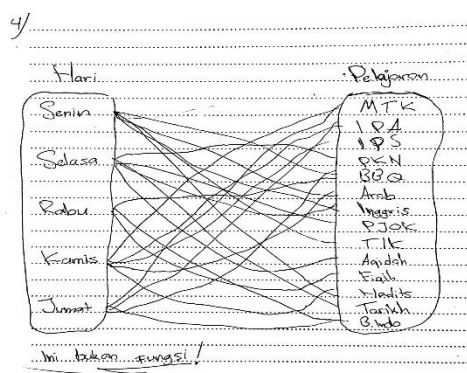 4/
Hari
Pelajaran
Senin
Selasa
Rabu
Kamis
Jumat
MTK
IPA
IPS
PKN
BBQ
Arab
Inggris
PJOK
TIK
Aqidah
Fiqih
Hadits
Tarikh
B.Indo
Ini bukan fungsi!